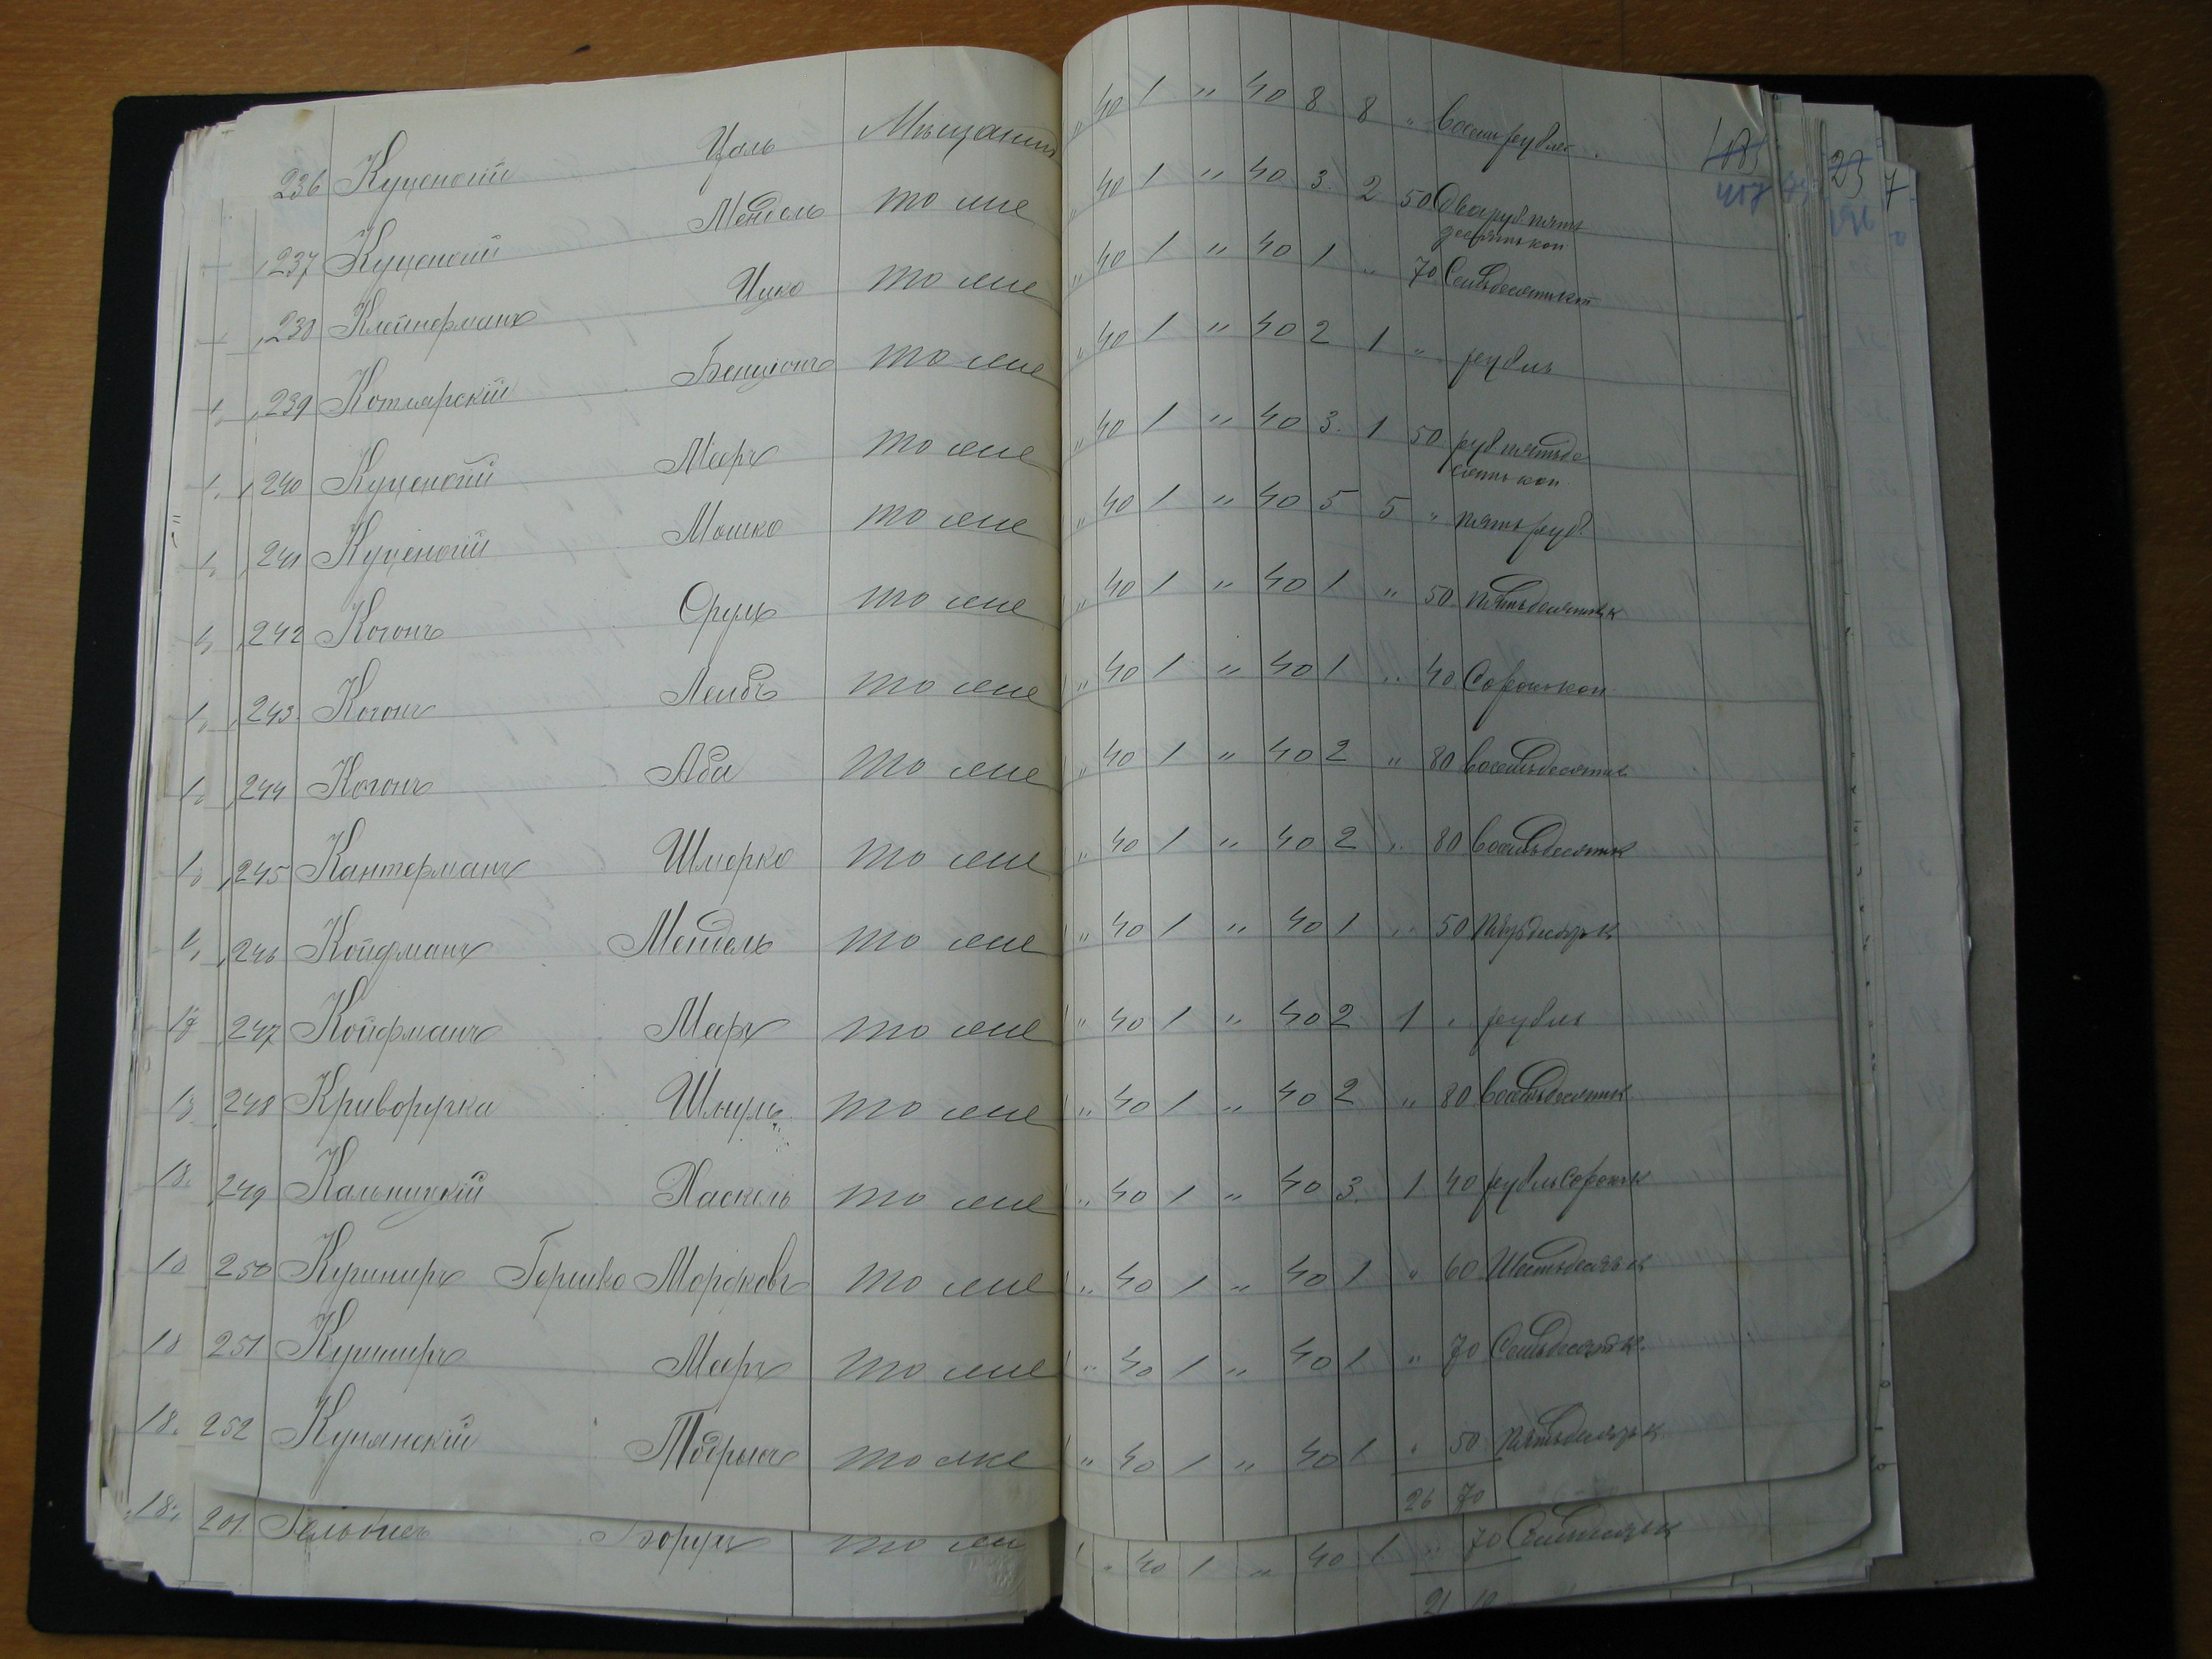 236 Куценогій Цаль Мѣщанинъ " 40 1 " 40 8 8 " восемь рублей
237 Куценогій Мендель то же " 40 1 " 40 3. 2 50 два руб. пять
десять коп
238 Клейнерманъ Ицко то же " 40 1 " 40 1 " 70 Семьдесятъ коп
239 Котлярскій Бенціонъ то же " 40 1 " 40 2 1 " рубль
240 Куценогій Мееръ то же " 40 1 " 40 3. 1 50 руб пятьде
сятъ коп
241 Куценогій Мошко то же " 40 1 " 40 5 5 " пять руб.
242 Когонъ Сруль то же " 40 1 " 40 1 " 50 пятьдесятъ к
243. Когонъ Лейбъ то же " 40 1 " 40 1 " 40 Сорокъ коп
244 Когонъ Аба то же " 40 1 " 40 2 " 80 восемьдесятъ к
245 Кантерманъ Шмерко то же " 40 1 " 40 2 " 80 восемьдесятъ к
246 Койфманъ Мендель то же " 40 1 " 40 1 " 50 пятьдесятъ к
17 247 Койфманъ Мееръ то же " 40 1 " 40 2 1 " рубль
248 Криворучка Шмуль то же " 40 1 " 40 2 " 80 восемьдесятъ к
18. 249 Кальницкій Хаскель то же " 40 1 " 40 3. 1 40 рубль Сорокъ к
18 250 Кушниръ Гершко Мордковъ то же " 40 1 " 40 1 " 60 Шестьдесятъ к
18 251 Кушниръ Мееръ то же " 40 1 " 40 1 " 70 Семьдесятъ к.
18. 252 Кунянскій то же " 40 1 " 40 1 " 50 пятьдесятъ к
26 70
18. 201. Борухъ то же " 40 1 " 40 1 70 Семьдесятъ к
21